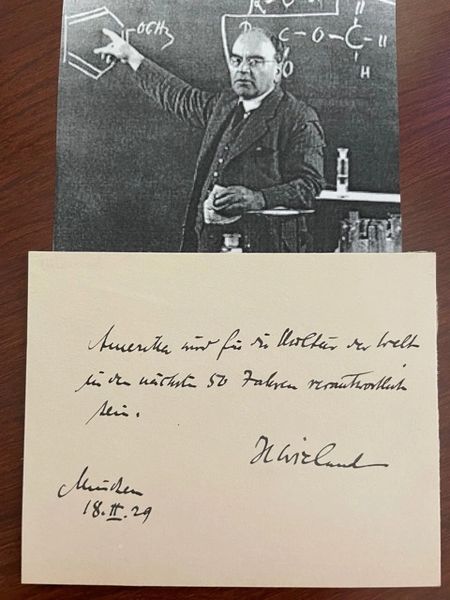 OCH3
R
O
H
R
C - O - C - H
O
H
Amerika wird für die Kultur der Welt
in den nächsten 50 Jahren verantwortlich
sein.
H Wieland
München
18. II. 29